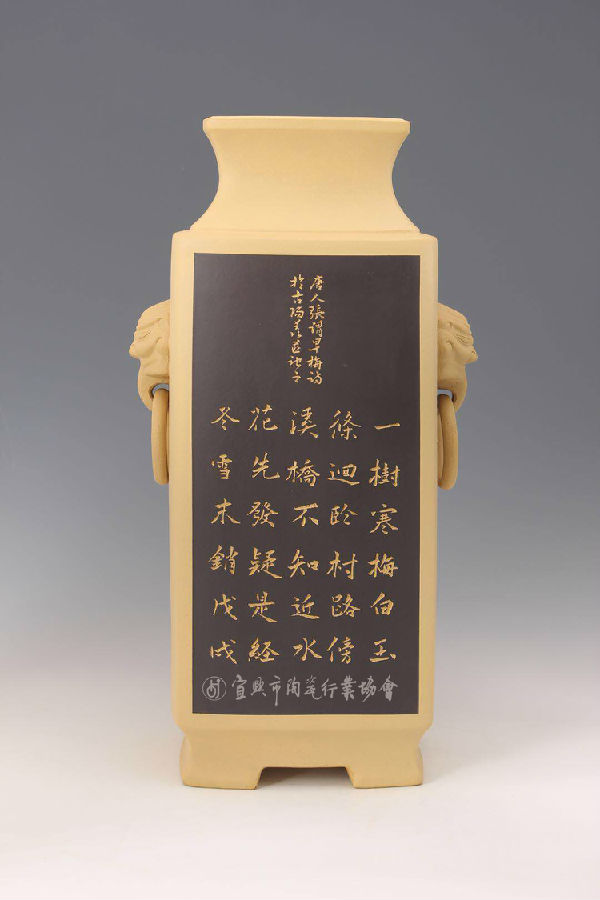 唐人張謂早梅詩
於古陽羨
一樹寒梅白玉
條迴臨村路傍
溪橋不知近水
花先發疑是經
冬雪未銷戊戌
宜興市陶瓷行業協會